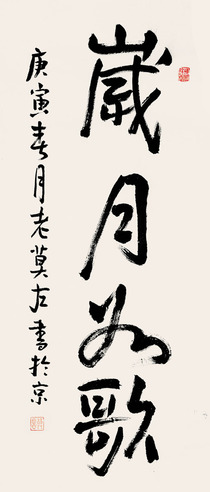 歲月如歌
庚寅春月老莫左書於京